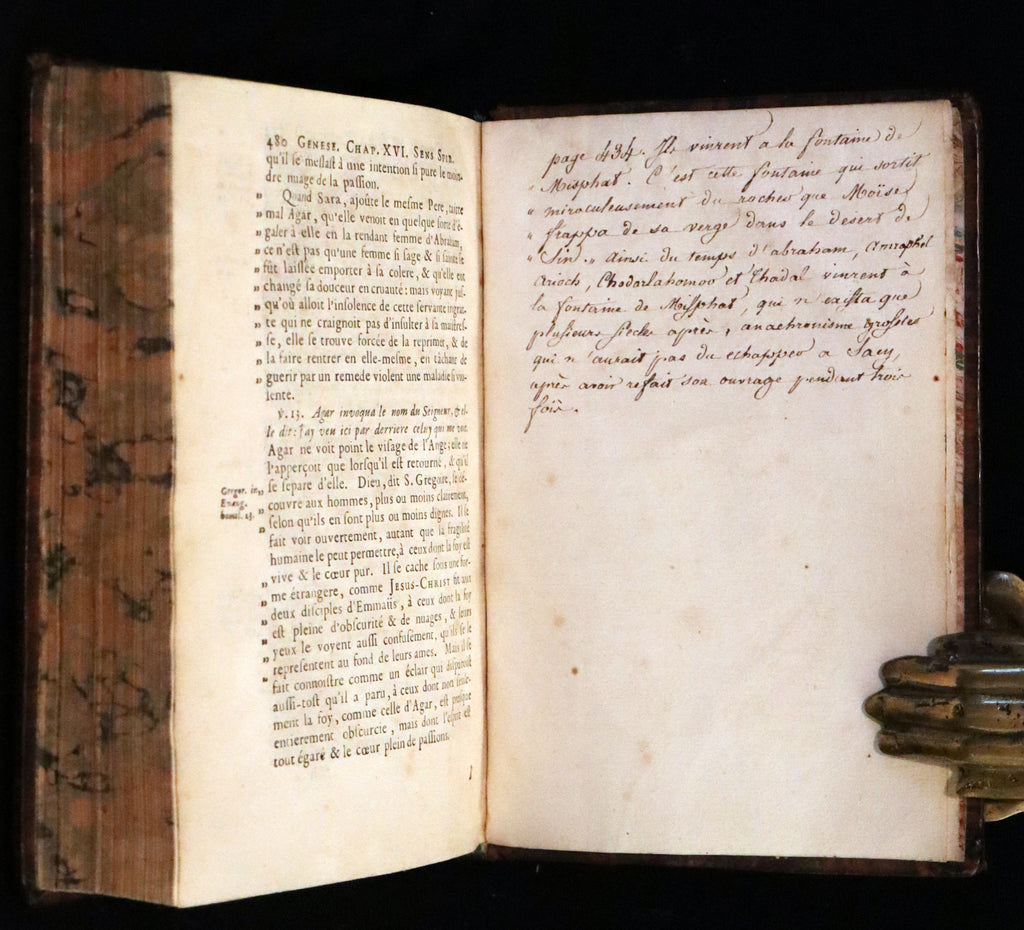 480 GENESE. CHAP. XVI. SENS SPIR.
qu'il se meslast à une intention si pure le moin-
dre nuage de la passion.
Quand Sara, ajoûte le mesme Pere, traitte
„ mal Agar, qu'elle venoit en quelque sorte d'é-
„ galer à elle en la rendant femme d'Abraham,
„ ce n'est pas qu'une femme si sage & si sainte se
„ fût laissée emporter à sa colere, & qu'elle eut
„ changé sa douceur en cruauté: mais voyant jus-
„ qu'où alloit l'insolence de cette servante ingra-
„ te qui ne craignoit pas d'insulter à sa maistres-
„ se, elle se trouve forcée de la reprimer, & de
„ la faire rentrer en elle-mesme, en tâchant de
„ guerir par un remede violent une maladie si vio-
lente.
℣. 13. Agar invoqua le nom du Seigneur, & el-
le dit: J'ay veu ici par derriere celuy qui me voit.
Agar ne voit point le visage de l'Ange: elle ne
l'apperçoit que lorsqu'il est retourné, & qu'il
„ se separe d'elle. Dieu, dit S. Gregoire, se dé-
„ couvre aux hommes, plus ou moins clairement,
„ selon qu'ils en sont plus ou moins dignes. Il se
„ fait voir ouvertement, autant que la fragilité
humaine le peut permettre, à ceux dont la foy est
„ vive & le cœur pur. Il se cache sous une for-
„ me étrangere, comme JESUS-CHRIST fit aux
„ deux disciples d'Emmaüs, à ceux dont la foy
„ est pleine d'obscurité & de nuages, & leurs
„ yeux le voyent aussi confusément, qu'ils se le
„ representent au fond de leurs ames. Mais il se
„ fait connoistre comme un éclair qui disparoist
aussi-tost qu'il a paru, à ceux dont non seule-
ment la foy, comme celle d'Agar, est presque
entierement obscurcie, mais dont l'esprit est
tout égaré & le cœur plein de passions.
Gregor. in
Evang.
homil. 23.
page 434. Ils vinrent a la fontaine de
„ Misphat. C'est cette fontaine qui sortit
„ miraculeusement du rocher que Moïse
„ frappa de sa verge dans le desert de
„ Sin. „ ainsi du temps d'abraham, amraphel
arioch, Chodorlahomor et Thadal vinrent à
la fontaine de Misphat, qui n'exista que
plusieurs siecles après, anachronisme grossier
qui n'aurait pas du echapper a Sacy,
après avoir refait son ouvrage pendant trois
fois.